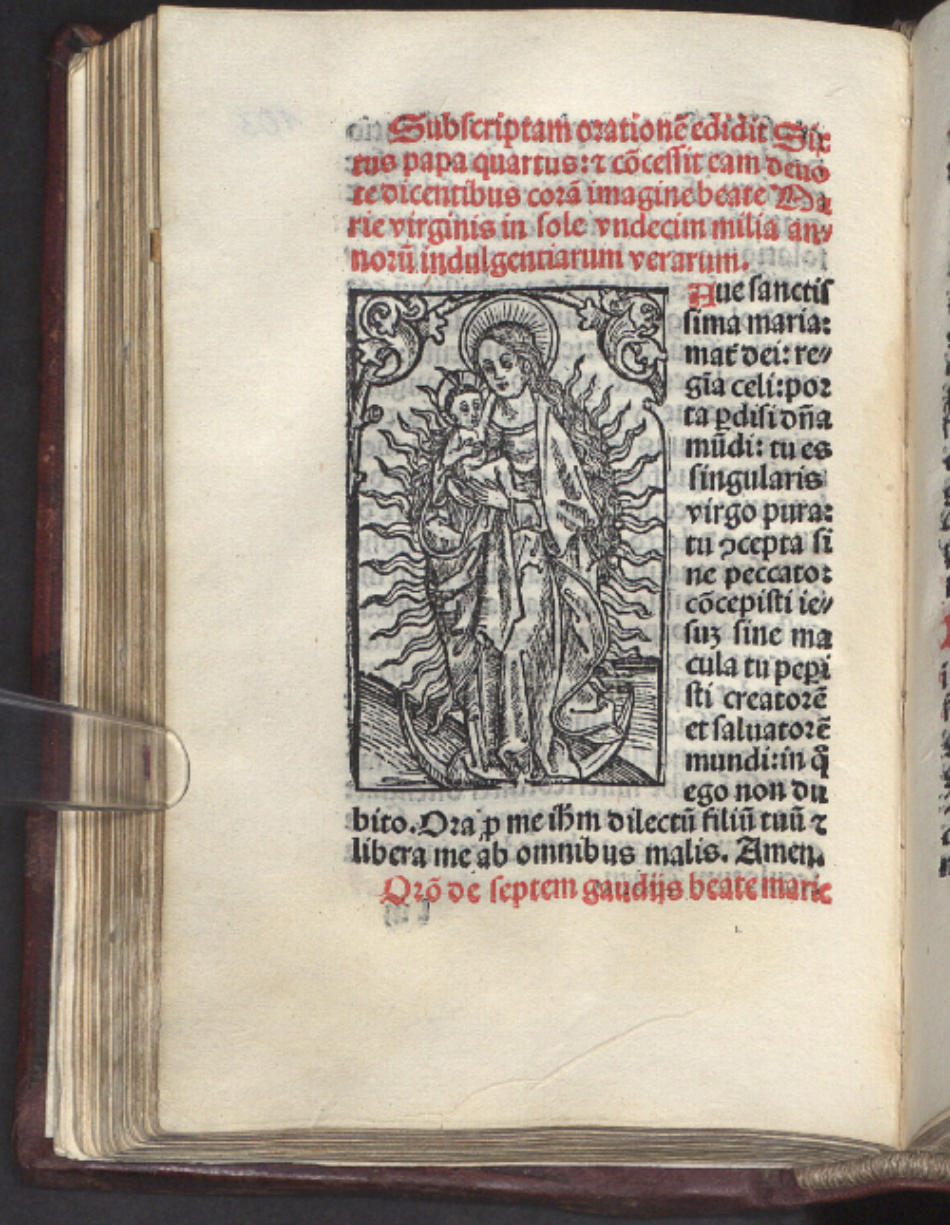 Subscriptam orationē edidit Six
tus papa quartus: ⁊ cōcessit eam deuo
te dicentibus corā imagine beate Ma
rie virginis in sole vndecim milia an⸗
norū indulgentiarum verarum.
Aue sanctis
sima maria:
mat̄ dei: re⸗
gīa celi: por
ta ꝑdisi dn̄a
mūdi: tu es
singularis
virgo pura:
tu ꝯcepta si
ne peccato:
cōcepisti ie⸗
suꝫ sine ma
cula tu peꝑi
sti creatorē
et saluatorē
mundi: in q̄
ego non du
bito. Ora ꝓ me ihm̄ dilectū filiū tuū ⁊
libera me ab omnibus malis. Amen.
Orō de septem gaudijs beate marie